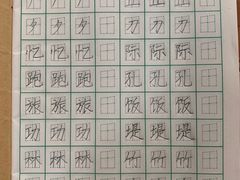 夕 夕 夕 力 力 力
忆 忆 忆 际 际 际
跑 跑 跑 孔 孔 孔
旅 旅 旅 饭 饭 饭
功 功 功 堤 堤 堤
林 林 林 竹 竹 竹